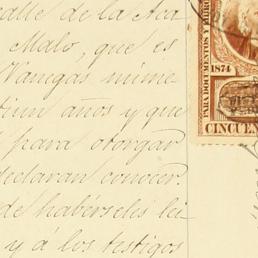 calle de la Aca
Malo, que es
Vanegas núme
años y que
para otorgar
declaran conocer.
de habérseles lei
y á los testigos
PARA DOCUMENTOS Y
1874
CINCUEN